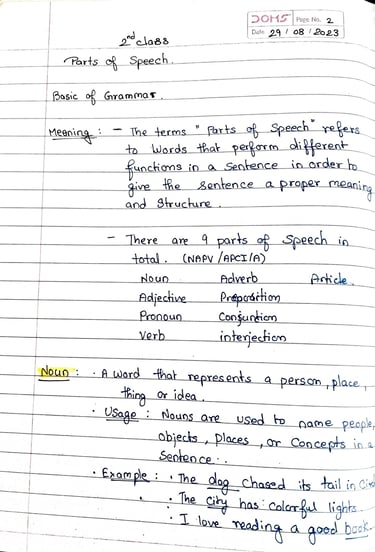 DOMS Page No. 2
Date 29 / 08 / 2023
2nd class
Parts of Speech.
Basic of Grammar.
Meaning : – The terms "Parts of Speech" refers
to words that perform different
functions in a sentence in order to
give the sentence a proper meaning
and structure.
– There are 9 parts of speech in
total. (NAPV/APCI/A)
Noun Adverb Article.
Adjective Preposition
Pronoun Conjuntion
Verb interjection
Noun : · A word that represents a person, place,
thing or idea.
· Usage : Nouns are used to name people,
objects, places, or concepts in a
sentence..
· Example : · The dog chased its tail in
· The city has colorful lights.
· I love reading a good book.